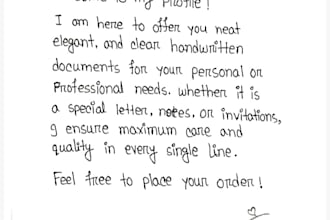 to my profile!
I am here to offer you neat
elegant, and clear handwritten
documents for your personal or
professional needs. whether it is
a special letter, notes, or invitations,
I ensure maximum care and
quality in every single line.
Feel free to place your order!